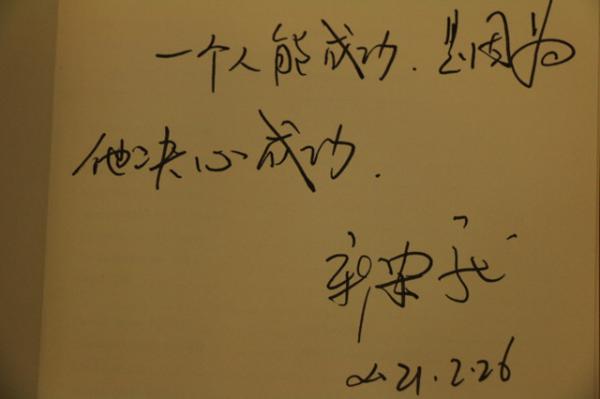 一个人能成功.是因为
他决心成功.
2021.2.26